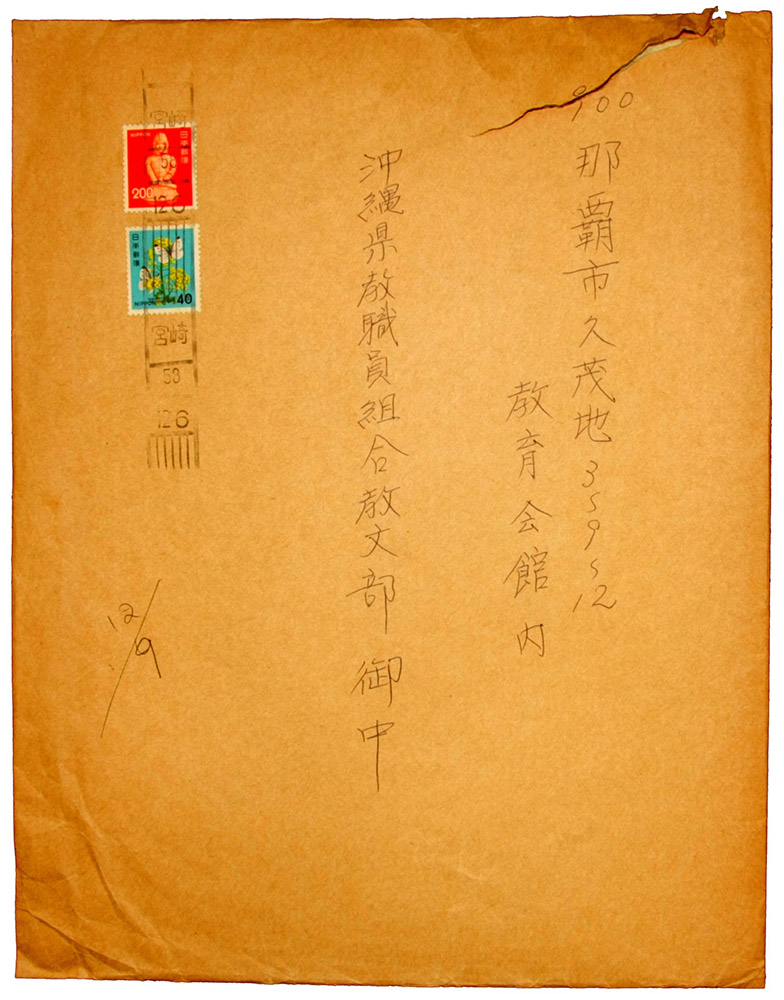 900
那覇市久茂地3〜9〜12
教育会館内
沖縄県教職員組合教文部 御中
宮崎
58
126
日本郵便
NIPPON
200
日本郵便
NIPPON
40
宮崎
58
126
12/9